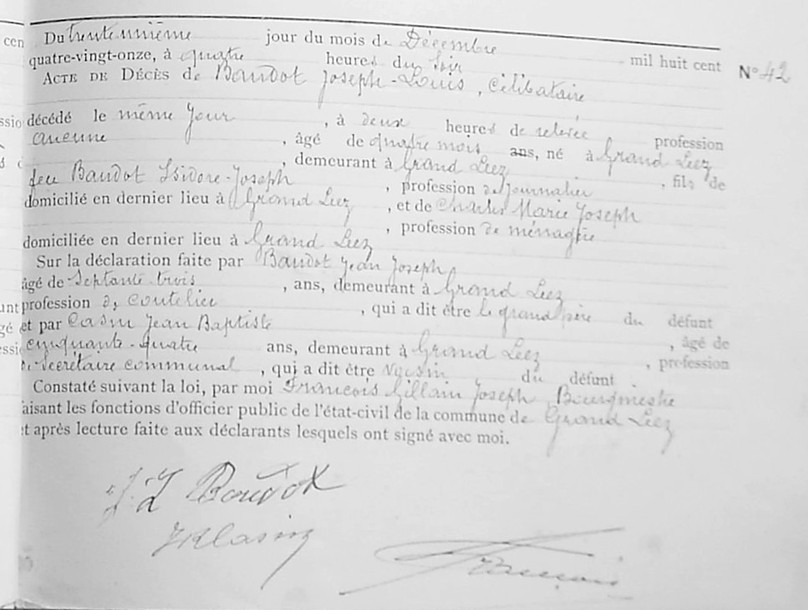 Du trente unième jour du mois de Décembre mil huit cent
quatre-vingt-onze, à quatre heures du soir
N° 42
ACTE DE DÉCÈS de Baudot Joseph-Louis, Célibataire
décédé le même jour, à deux heures de relevée profession
aucune, âgé de quatre mois ans, né à Grand Leez
, demeurant à Grand Leez, fils de
feu Baudot Isidore-Joseph, profession de journalier
domicilié en dernier lieu à Grand Leez, et de Charles Marie Joseph
, profession de ménagère
domiciliée en dernier lieu à Grand Leez
Sur la déclaration faite par Baudot Jean Joseph,
âgé de septante trois, ans, demeurant à Grand Leez
profession de coutelier, qui a dit être le grand père du défunt
et par Jean Baptiste, âgé de
cinquante-quatre ans, demeurant à Grand Leez, profession
de secrétaire communal, qui a dit être voisin du défunt.
Constaté suivant la loi, par moi François Gillain Joseph Bourgmestre
faisant les fonctions d'officier public de l'état-civil de la commune de Grand Leez
et après lecture faite aux déclarants lesquels ont signé avec moi.
J. J. Baudot
François